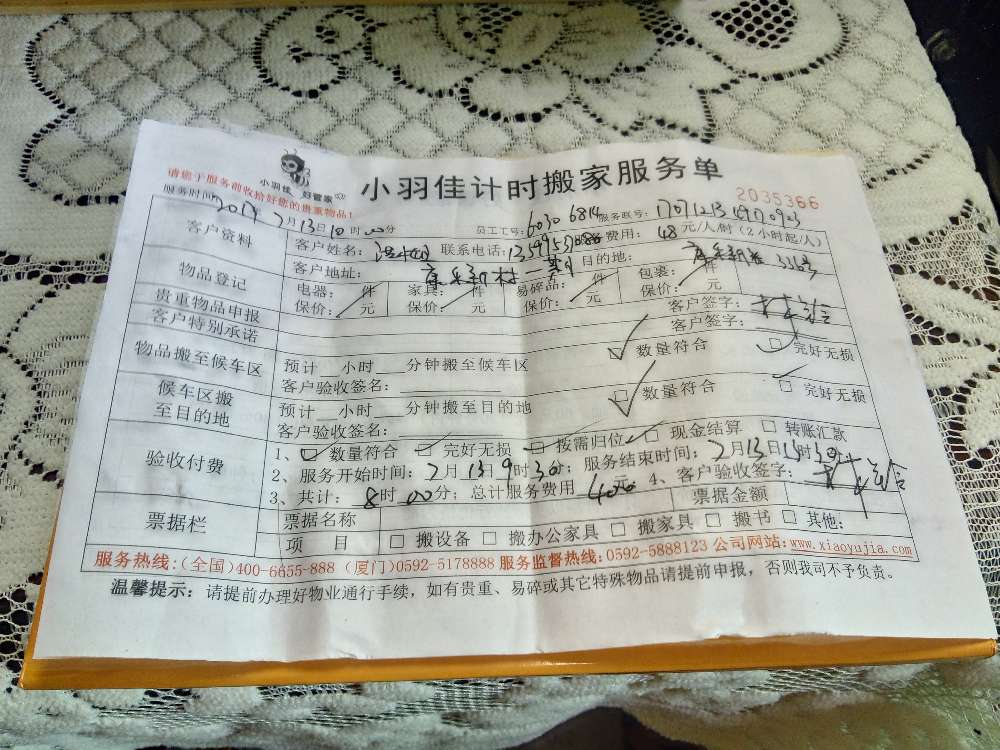 小羽佳 好管家
小羽佳计时搬家服务单
请您于服务前收拾好您的贵重物品!
2035366
服务时间: 2017 2月13日10时00分 员工工号: 6030 6814 服务账号:
客户资料 客户姓名: 联系电话: 费用: 48元/人/时 (2小时起/人)
客户地址: 康乐新村一期 目的地: 康乐新村 336号
物品登记 电器: 件 家具: 件 易碎品: 件 包裹: 件
保价: 元 保价: 元 保价: 元 保价: 元
贵重物品申报 客户签字:
客户特别承诺 客户签字:
物品搬至候车区 预计___小时___分钟搬至候车区 数量符合 完好无损
客户验收签名:
候车区搬至目的地 预计___小时___分钟搬至目的地 数量符合 完好无损
客户验收签名:
验收付费 1、数量符合 完好无损 按需归位 现金结算 转账汇款
2、服务开始时间: 2月13日9时30分; 服务结束时间: 2月13日 时30分
3、共计: 8时00分; 总计服务费用 400元 4、客户验收签字:
票据栏 票据名称 票据金额
项 目 搬设备 搬办公家具 搬家具 搬书 其他:
服务热线:(全国)400-6655-888 (厦门)0592-5178888 服务监督热线:0592-5888123 公司网站:www.xiaoyujia.com
温馨提示: 请提前办理好物业通行手续, 如有贵重、易碎或其它特殊物品请提前申报, 否则我司不予负责。